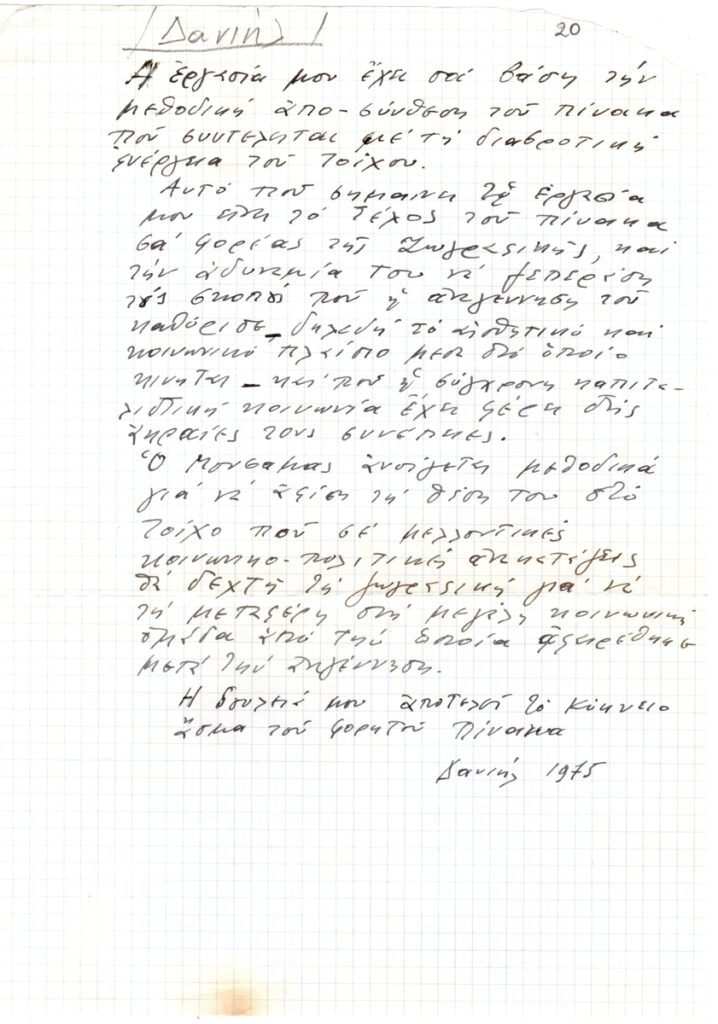 Δανιήλ
20
Ἡ ἐργασία μου ἔχει σά βάση τήν
μεθοδική ἀπο-σύνθεση τοῦ πίνακα
πού συντελῆται μέ τή διαβροτική
ἐνέργεια τοῦ τοίχου.
Αὐτό πού σημαίνη ἡ ἐργασία
μου εἶνε τό τέλος τοῦ πίνακα
σά φορέας τῆς Ζωγραφικῆς, καί
τήν ἀδυναμία του νά ξεπεράση
τούς σκοπού πού ἡ ἀναγέννηση τοῦ
καθόρισε _ δηλαδή τό αἰσθητικό καί
κοινωνικό πλαίσιο μεσ στό ὁποίο
κινηται _ καί πού ἡ σύγχρονη καπιτα-
λιστική κοινωνία ἔχει φέρει στίς
ἀκραίες τους συνέπειες.
Ὁ Μουσαμας ἀνοίγεται μεθοδικά
γιά νά ἀφίση τή θέση του στό
τοίχο πού σέ μελλοντικές
κοινωνικο-πολιτικές ἀνακατάξεις
θά δεχτῆ τή ζωγραφική γιά νά
τή μεταφέρη στή μεγάλη κοινωνική
ὁμάδα ἀπό τήν ὁποία ἀφαιρέθηκε
μετά τήν ἀναγέννηση.
Ἡ δουλειά μου ἀποτελεῖ τό Κύκνειο
ἄσμα τοῦ Φορητοῦ Πίνακα
Δανιήλ 1975